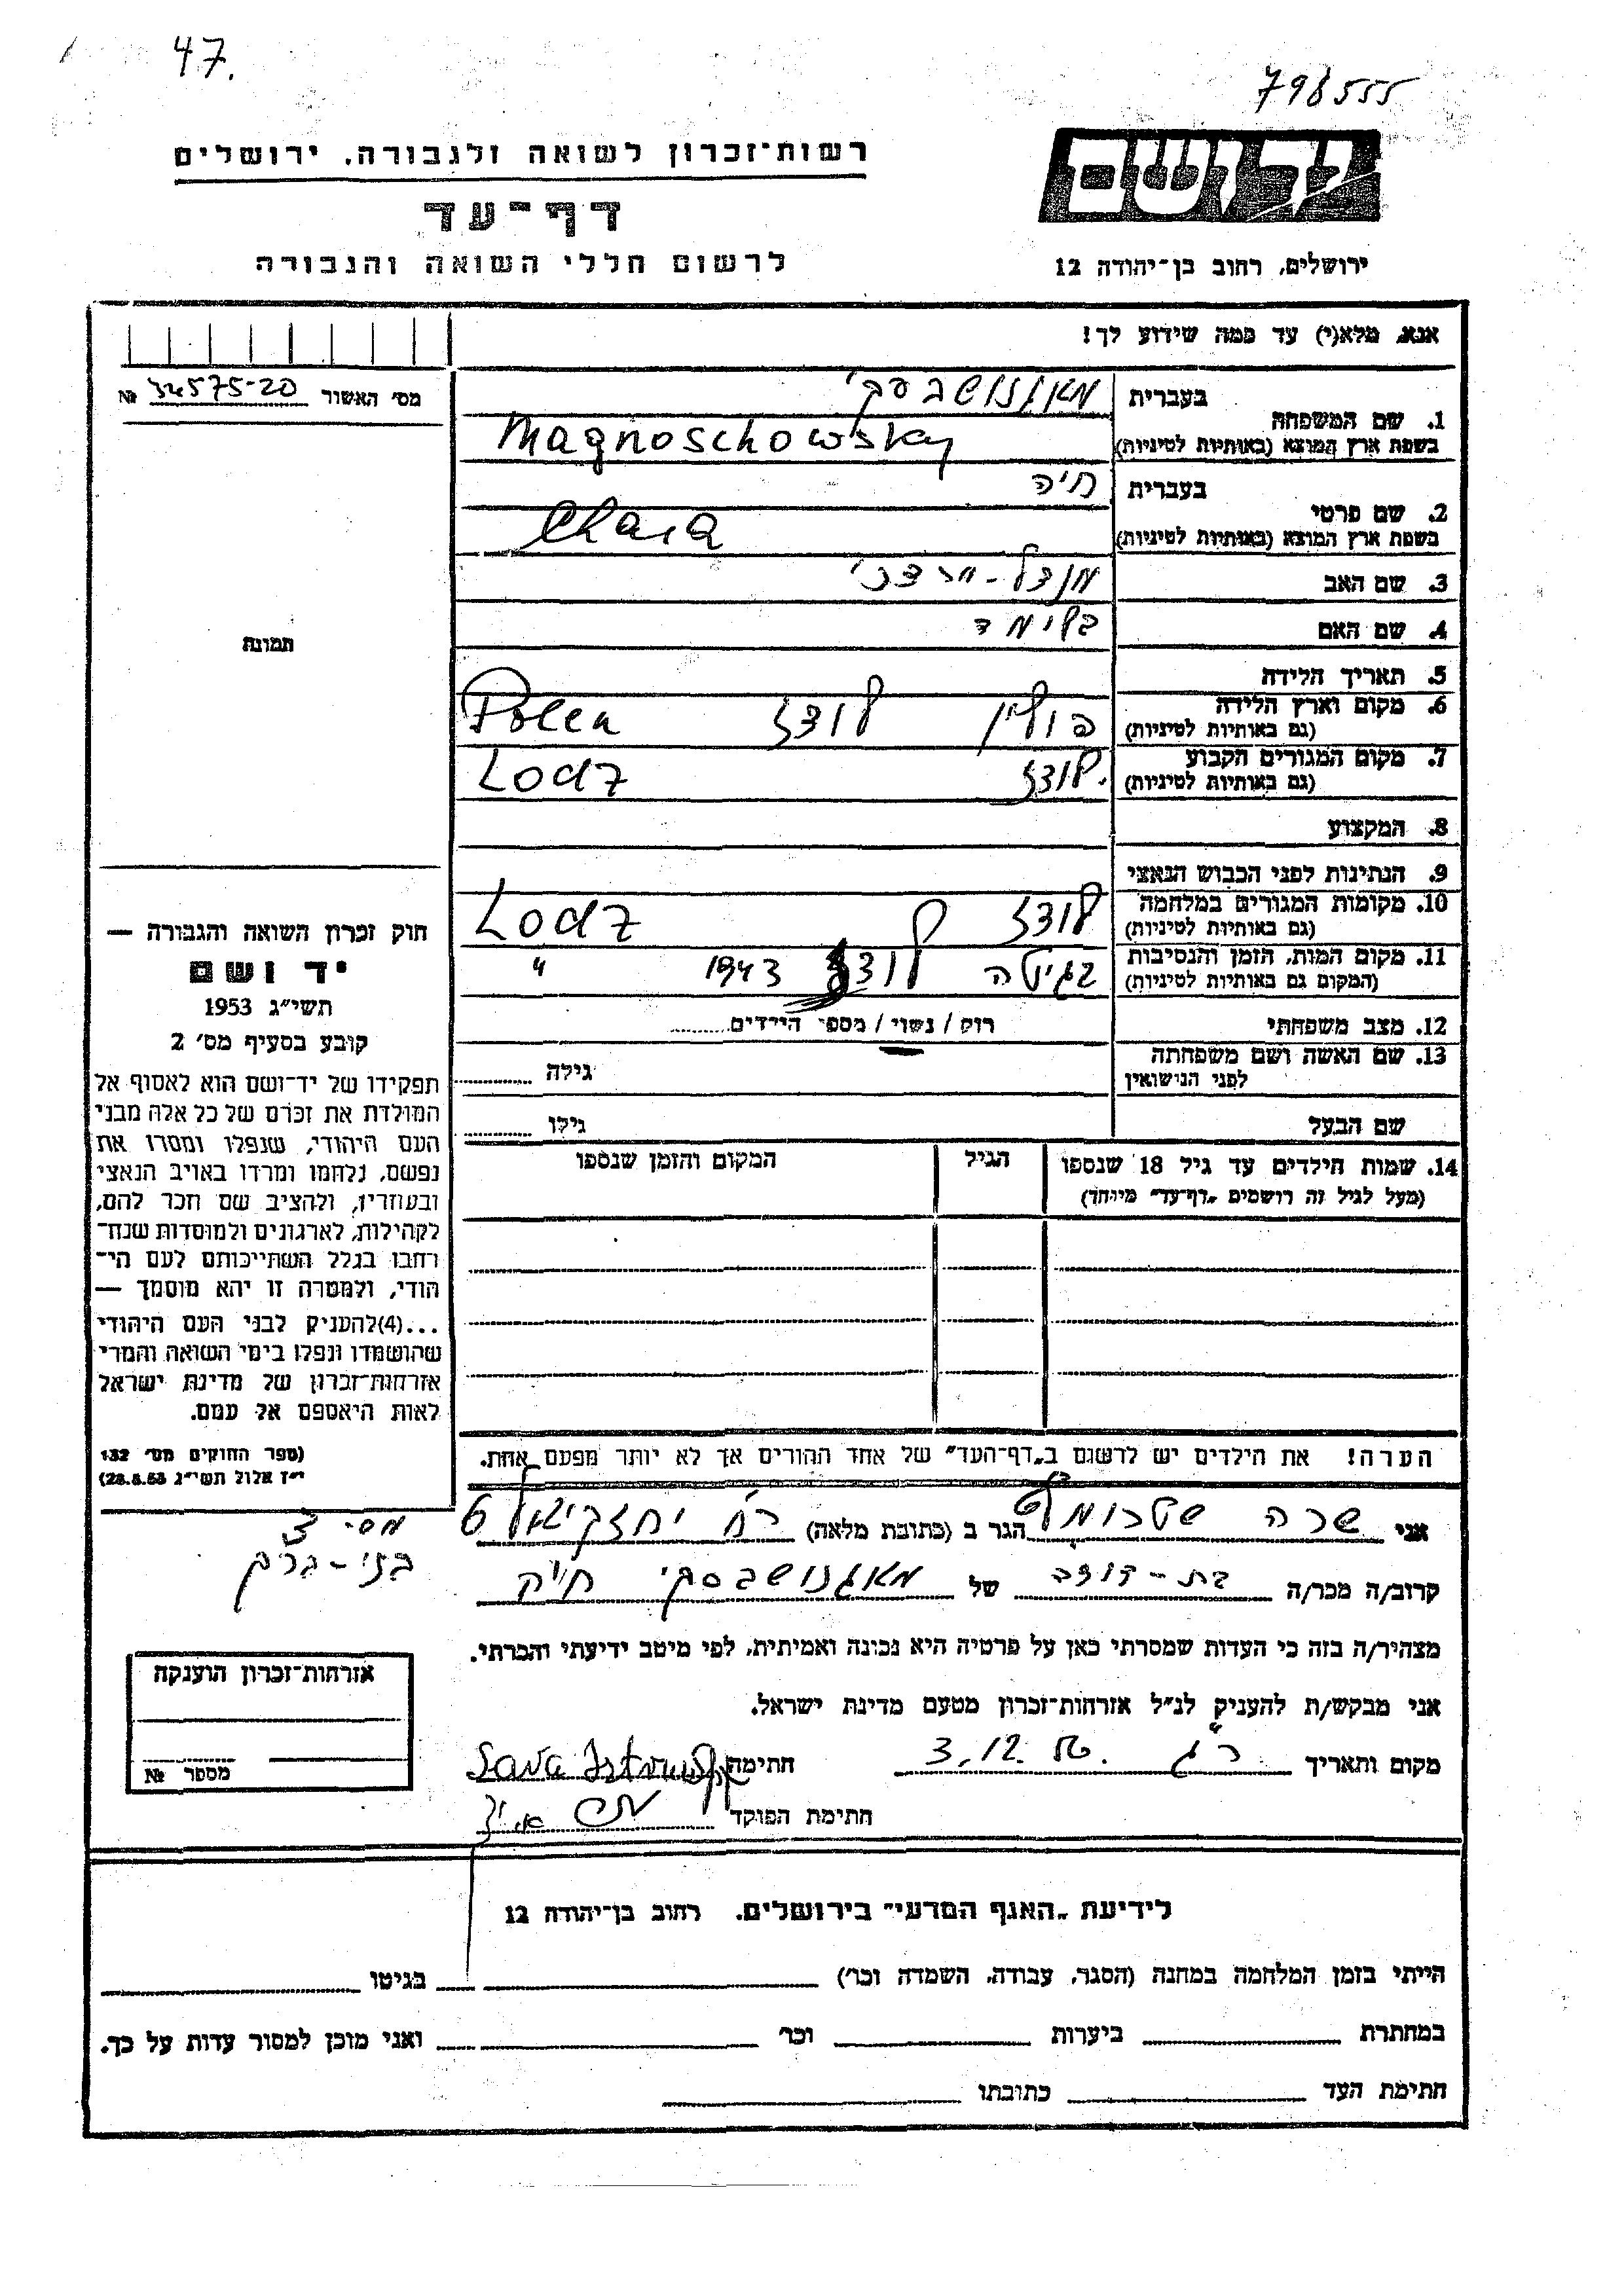 47.
798555
רשות־זכרון לשואה ולגבורה, ירושלים
דף־עד
לרשום חללי השואה והגבורה
יד ושם
ירושלים, רחוב בן־יהודה 12
אנא, מלא(י) עד כמה שידוע לך!
מס׳ האשור № 34575-20
בעברית מאגנושבסקי
1. שם המשפחה
בשפת ארץ המוצא (באותיות לטיניות) Magnoschowsky
בעברית חיה
2. שם פרטי
בשפת ארץ המוצא (באותיות לטיניות) Chaia
3. שם האב מנדל-מרדכי
4. שם האם
5. תאריך הלידה
6. מקום וארץ הלידה פולין לודז Polen
(גם באותיות לטיניות)
7. מקום המגורים הקבוע לודז Lodz
(גם באותיות לטיניות)
8. המקצוע
9. הנתינות לפני הכבוש הנאצי
10. מקומות המגורים במלחמה לודז Lodz
(גם באותיות לטיניות)
11. מקום המות, הזמן והנסיבות בגיטה לודז 1943 "
(המקום גם באותיות לטיניות)
12. מצב משפחתי רוק / נשוי / מספר הילדים
13. שם האשה ושם משפחתה גילה
לפני הנישואין
שם הבעל גילו
14. שמות הילדים עד גיל 18 שנספו הגיל המקום והזמן שנספו
(מעל לגיל זה רושמים „דף־עד״ מיוחד)
הערה! את הילדים יש לרשום ב„דף־העד״ של אחד ההורים אך לא יותר מפעם אחת.
תמונה
חוק זכרון השואה והגבורה —
יד ושם
תשי״ג 1953
קובע בסעיף מס׳ 2
תפקידו של יד־ושם הוא לאסוף אל
המולדת את זכרם של כל אלה מבני
העם היהודי, שנפלו ומסרו את
נפשם, נלחמו ומרדו באויב הנאצי
ובעוזריו, ולהציב שם וזכר להם,
לקהילות, לארגונים ולמוסדות שנח־
רבו בגלל השתייכותם לעם הי־
הודי, ולמטרה זו יהא מוסמך —
...(4)להעניק לבני העם היהודי
שהושמדו ונפלו בימי השואה והמרי
אזרחות־זכרון של מדינת ישראל
לאות היאספם אל עמם.
(ספר החוקים מס׳ 132
י״ז אלול תשי״ג 28.8.53)
אני שרה הגר ב (כתובת מלאה) רח יחזקיאל 6
מס׳ 3
בני-ברק
קרוב/ה מכר/ה בת-דודה של מאגנושבסקי חיה
מצהיר/ה בזה כי העדות שמסרתי כאן על פרטיה היא נכונה ואמיתית, לפי מיטב ידיעתי והכרתי.
אני מבקש/ת להעניק לנ״ל אזרחות־זכרון מטעם מדינת ישראל.
מקום ותאריך ר״ג 3.12.56 חתימה Sara
חתימת הפוקד
אזרחות־זכרון הוענקה
מספר №
לידיעת „האגף המדעי״ בירושלים, רחוב בן־יהודה 12
הייתי בזמן המלחמה במחנה (הסגר, עבודה, השמדה וכו׳) בגיטו
במחתרת ביערות וכו׳ ואני מוכן למסור עדות על כך.
חתימת העד כתובתו